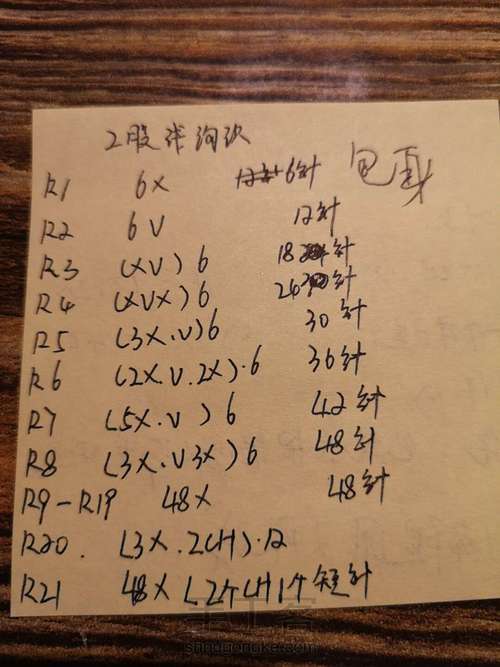 2股
包身
R1 6X 6针
R2 6V 12针
R3 (XV)6 18针
R4 (XVX)6 24针
R5 (3X.V)6 30针
R6 (2X.V.2X).6 36针
R7 (5X.V)6 42针
R8 (3X.V3X)6 48针
R9-R19 48X 48针
R20. (3X.2CH).12
R21 48X (2个CH1个短针
shougongke.com